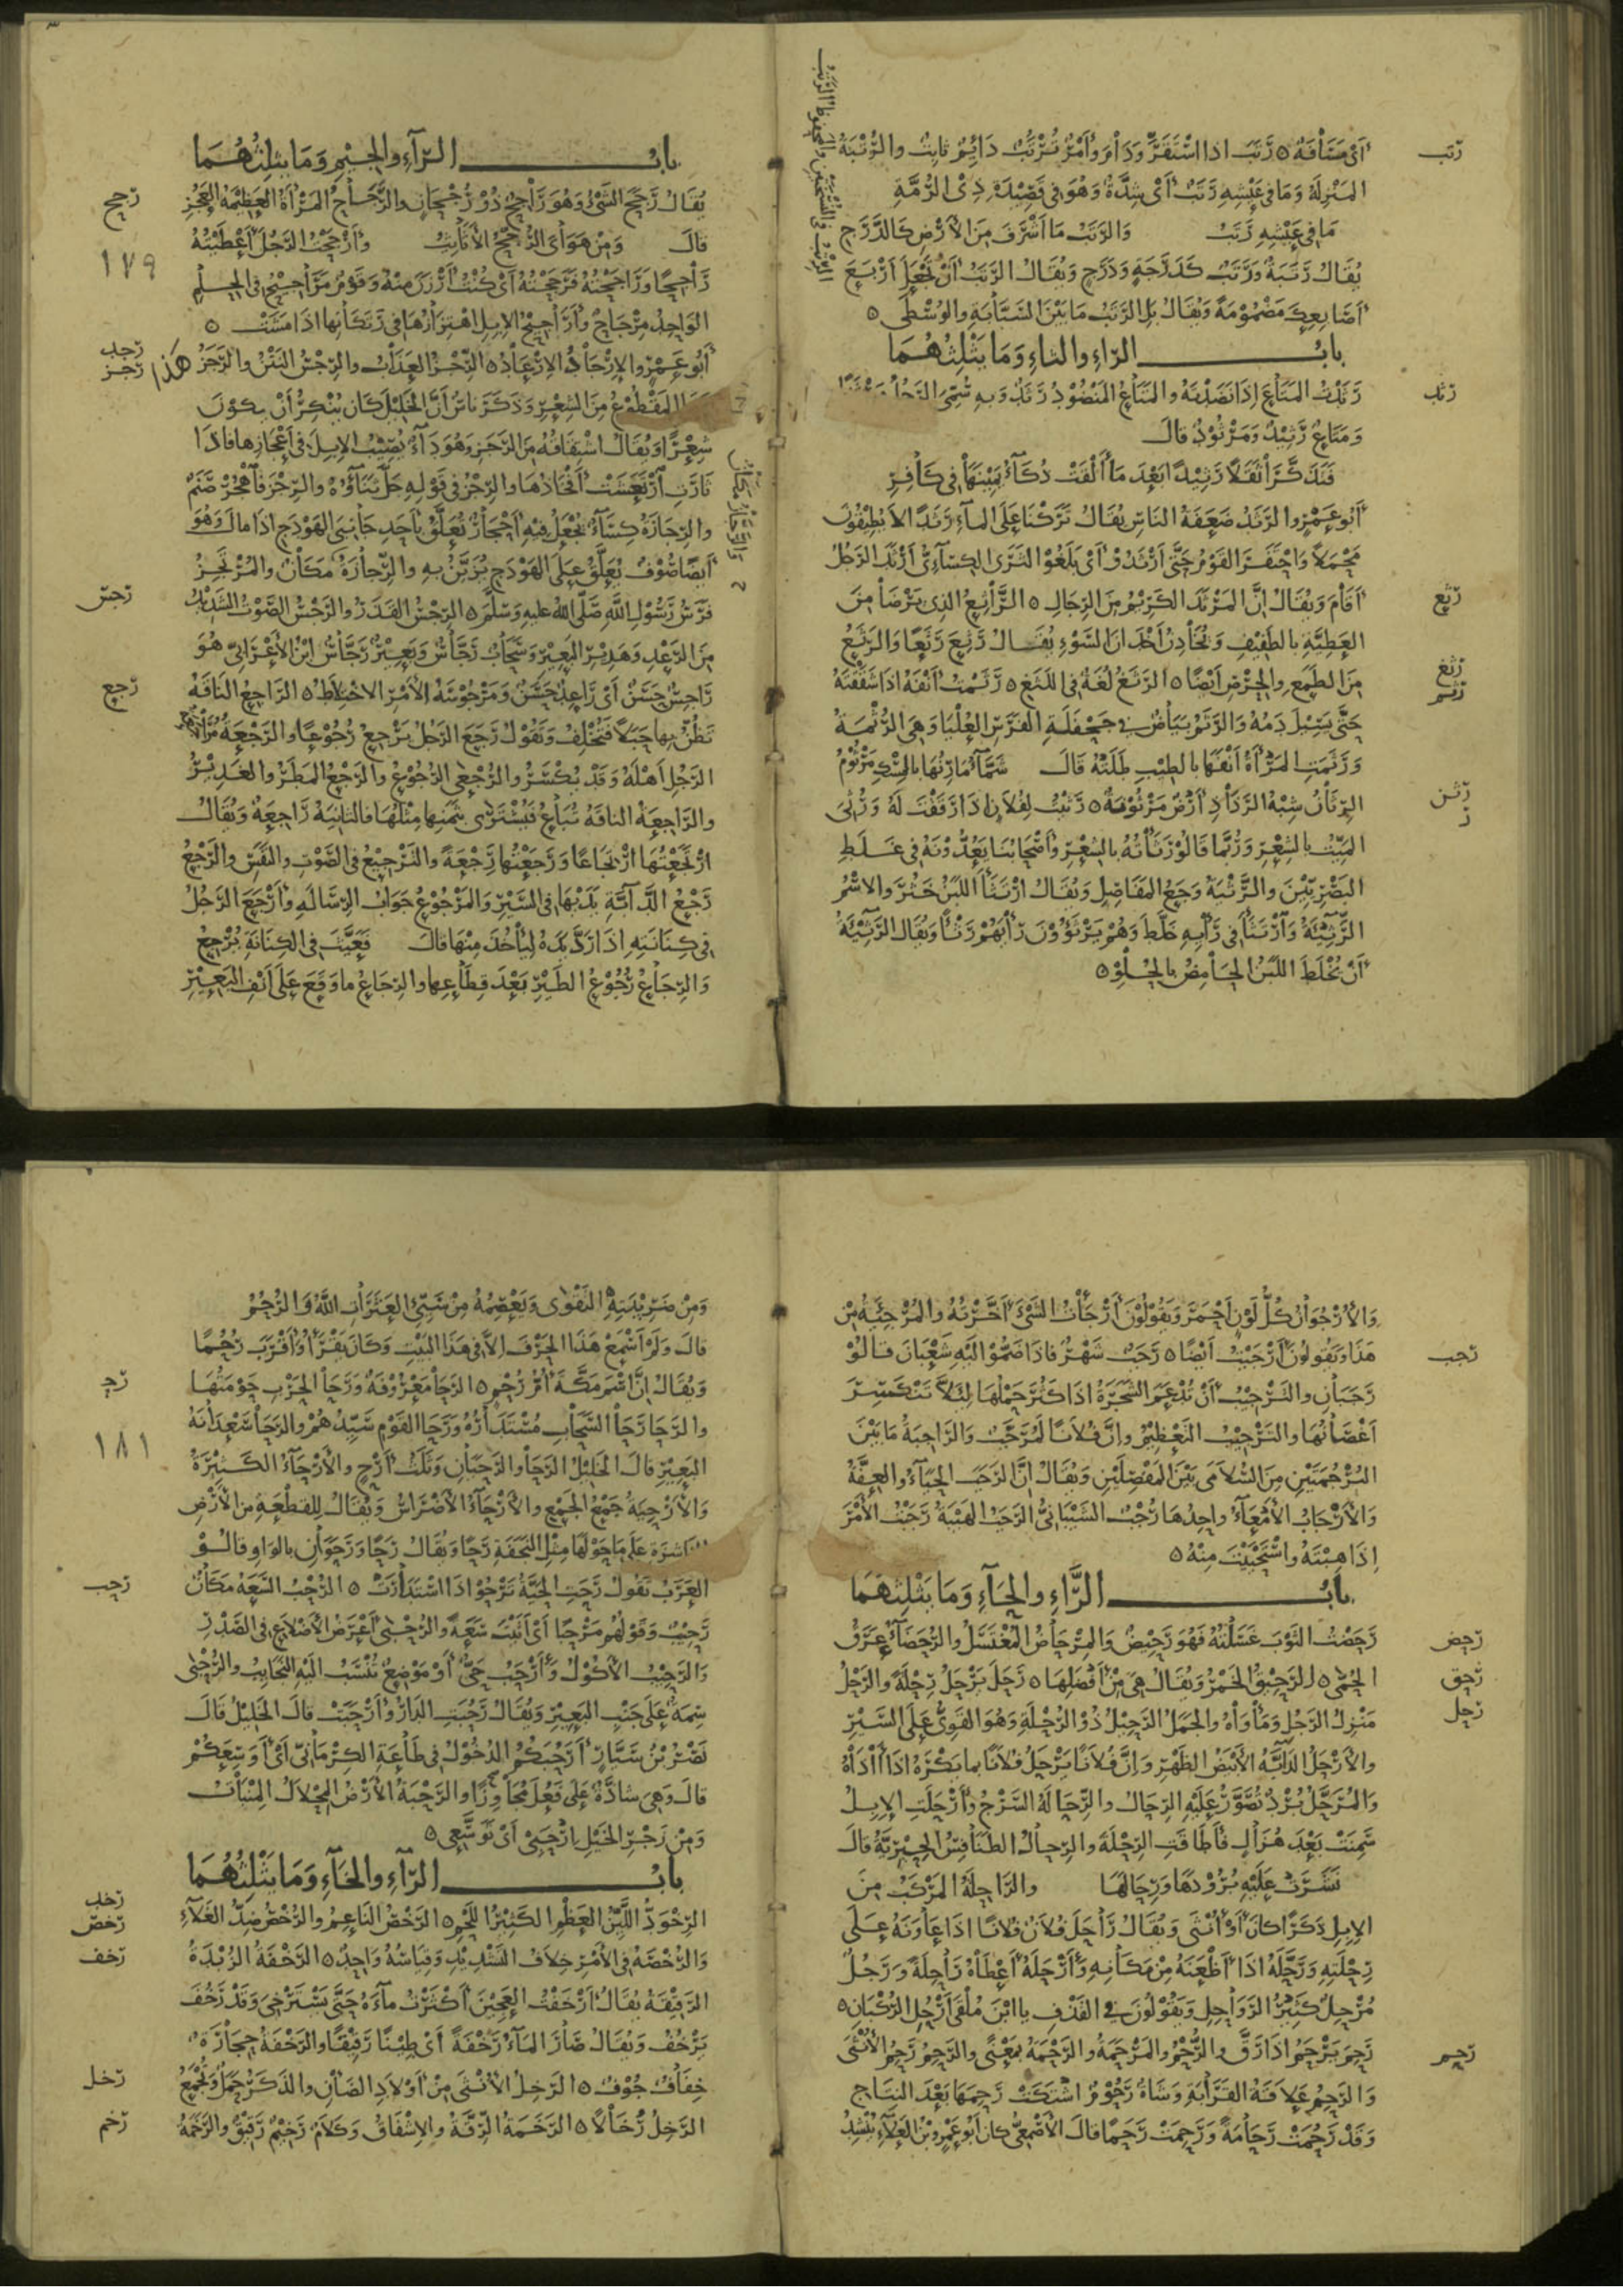 أي مسافة ٥ رتب اذا استقر ودام وأمر ترتب دائم ثابت والرتبة
رتب
المنزلة وما في عيشه رتب أي شدة وهو في قصيدة ذي الرمة
ما في عيشه رتب والرتب ما أشرف من الأرض كالدرج
يقال رتبة ورتب كدرجة ودرج ويقال الرتب أن تجعل أربع
أصابعك مضمومة ويقال بل الرتب ما بين السبابة والوسطى ٥
باب الراء والثاء وما يثلثهما
رثدت المتاع اذا نضدته والمتاع المنضود رثد وبه سمي الرجل مرثدا
رثد
ومتاع رثيد ومرثود قال
فتذكرا ثقلا رثيدا بعد ما ألقت ذكاء يمينها في كافر
أبو عمرو الرثد ضعفة الناس يقال تركنا على الماء رثدا لا يطيقون
محملا واحتفر القوم حتى أرثدوا أي بلغوا الثرى الكسائي أرثد الرجل
أقام ويقال ان المرثد الكريم من الرجال ٥ الراثع الذي يرضا من
رثع
العطية بالطفيف ويخادن أخدان السوء يقال رثع رثعا والرثع
من الطمع والحرص أيضا ٥ الرثغ لغة في اللثغ ٥ رثمت أنفه اذا شققته
رثغ
رثم
حتى يسيل دمه والرثم بياض في جحفلة الفرس العليا وهي الرثمة
ورثمت المرأة أنفها بالطيب طلته قال شماء مارنها بالمسك مرثوم
الرثان شبه الرذاذ أرض مرثونة ٥ رثيت لفلان اذا رققت له ورثى
رثن
الميت بالشعر وربما قالوا رثأته بالشعر وأصحابنا يعدونه في غلط
البصريين والرثية وجع المفاصل ويقال ارتثأ اللبن خثر والاسم
الرثيئة وارتثأ في رأيه خلط وهم يرثؤون رأيهم رثأ ويقال الرثيئة
أن يخلط اللبن الحامض بالحلو ٥
باب الراء والجيم وما يثلثهما
يقال رجح الشيء وهو راجح ذو رجحان والرجاح المرأة العظيمة العجز
رجح
قال ومن هواي الرجح الأثائث وأرجحت الرجل أعطيته
١٧٩
راجحا وراجحته فرجحته أي كنت أرزن منه وقوم مراجيح في الحلم
الواحد مرجاح وأراجيح الإبل اهتزازها في رتكانها اذا مشت ٥
أبو عمرو الإرجاد الإرعاد ٥ الرجز العذاب والرجس النتن والرجز
هكذا
رجد
رجز
المقطوع من الشعر وذكر ناس أن الخليل كان ينكر أن يكون
شعرا ويقال اشتقاقه من الرجز وهو داء يصيب الإبل في أعجازها فاذا
ثارت ارتعشت أفخاذها والرجز في قوله جل ثناؤه والرجز فاهجر صنم
والرجازة كساء يجعل فيه أحجار يعلق بأحد جانبي الهودج اذا مال وهو
أيضا صوف يعلق على الهودج يزين به والرجازة مكان والمرتجز
فرس رسول الله صلى الله عليه وسلم ٥ الرجس القذر والرجس الصوت الشديد
رجس
من الرعد وهدير البعير وسحاب رجاس وبعير رجاس ابن الأعرابي هو
راجس حسن أي راعد حسن ومرجوسة الأمر الاختلاط ٥ الراجع الناقة
رجع
تظن بها حبلا فتخلف وتقول رجع الرجل يرجع رجوعا والرجعة مراجعة
الرجل أهله وقد يكسر والرجعى الرجوع والرجع المطر والغدير
والراجعة الناقة تباع فيشترى بثمنها مثلها فالثانية راجعة ويقال
ارتجعتها ارتجاعا ورجعتها رجعة والترجيع في الصوت والنفس والرجع
رجع الدابة يديها في السير والمرجوع جواب الرسالة وأرجع الرجل
في كنانته اذا رد يده ليأخذ منها قال فعيث في الكنانة يرجع
والرجاع رجوع الطير بعد قطاعها والرجاع ما وقع على أنف البعير
والأرجوان كل لون أحمر ويقولون أرجأت الشيء أخرته والمرجئة من
هذا ويقولون أرجيت أيضا ٥ رجب شهر فاذا ضموا اليه شعبان قالوا
رجب
رجبان والترجيب أن تدعم الشجرة اذا كثر حملها لئلا تتكسر
أغصانها والترجيب التعظيم وان فلانا لمرجب والراجبة ما بين
البرجمتين من السلامى بين المفصلين ويقال ان الرجب الحياء والعفة
والأرجاب الأمعاء واحدها رجب الشيباني الرجب الهيبة رجبت الأمر
اذا هبته واستحييت منه ٥
باب الراء والحاء وما يثلثهما
رحضت الثوب غسلته فهو رحيض والمرحاض المغتسل والرحضاء عرق
رحض
الحمى ٥ الرحيق الخمر ويقال هي من أفضلها ٥ رحل يرحل رحلة والرحل
رحق
منزل الرجل ومأواه والجمل الرحيل ذو الرحلة وهو القوي على السير
رحل
والأرحل الدابة الأبيض الظهر وان فلانا يرحل فلانا بما يكره اذا آذاه
والمرحل برد تصور عليه الرحال والرحالة السرج وأرحلت الإبل
سمنت بعد هزال فأطاقت الرحلة والرحال الطنافس الحيرية قال
نشرت عليه برودها ورحالها والراحلة المركب من
الإبل ذكرا كان أو أنثى ويقال راحل فلان فلانا اذا عاونه على
رحلته ورحله اذا أظعنه من مكانه وأرحله أعطاه راحلة ورجل
مرحل كثير الرواحل ويقولون في القذف يا ابن ملقى أرحل الركبان ٥
رحم يرحم اذا رق والرحم والمرحمة والرحمة بمعنى والرحم رحم الأنثى
رحم
والرحم علاقة القرابة وشاة رحوم اشتكت رحمها بعد النتاج
وقد رحمت رحامة ورحمت رحما قال الأصمعي كان أبو عمرو بن العلاء ينشد
ومن ضريبته التقوى ويعصمه من سيئ العثرات الله والرحم
قال ولم أسمع هذا الحرف الا في هذا البيت وكان يقرأ وأقرب رحما
ويقال ان اسم مكة أم رحم ٥ الرحا معروفة ورحا الحرب حومتها
رحي
والرحا رحا السحاب مستداره ورحا القوم سيدهم والرحا سعدانة
١٨١
البعير قال الخليل الرحا والرحيان وثلث أرح والأرحاء الكثيرة
والأرحية جمع الجمع والأرحاء الأضراس ويقال للقطعة من الأرض
الناشزة على ما حولها مثل النجفة رحا ويقال رحا ورحوان بالواو قالوا
العرب تقول رحت الحية ترحو اذا استدارت ٥ الرحب السعة مكان
رحب
رحيب وقولهم مرحبا أي أتيت سعة والرحبى أعرض الأضلاع في الصدر
والرحيب الأكول وأرحب حي أو موضع تنسب اليه النجائب والرحبى
سمة على جنب البعير ويقال رحبت الدار وأرحبت قال الخليل قال
نصر بن سيار أرحبكم الدخول في طاعة الكرماني أي أوسعكم
قال وهي شاذة على فعل مجاوزا والرحبة الأرض المحلال المئناث
ومن زجر الخيل ارحبي أي توسعي ٥
باب الراء والخاء وما يثلثهما
الرخود اللين العظم الكثير اللحم ٥ الرخص الناعم والرخص ضد الغلاء
رخد
رخص
والرخصة في الأمر خلاف التشديد وقياسه واحد ٥ الرخفة الزبدة
رخف
الرقيقة يقال أرخفت العجين أكثرت ماءه حتى يسترخي وقد رخف
يرخف ويقال صار الماء رخفة أي طينا رقيقا والرخفة حجارة
خفاف جوف ٥ الرخل الأنثى من أولاد الضأن والذكر حمل وتجمع
رخل
الرخل رخالا ٥ الرخمة الرقة والإشفاق وكلام رخيم رقيق والرخمة
رخم